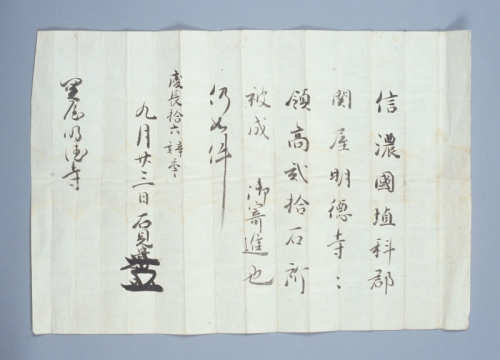 信濃國埴科郡
関屋明徳寺ゝ
領高弐拾石所
被成 御寄進也
仍如件
慶長拾六辛亥
九月廿三日 石見守
関屋明徳寺